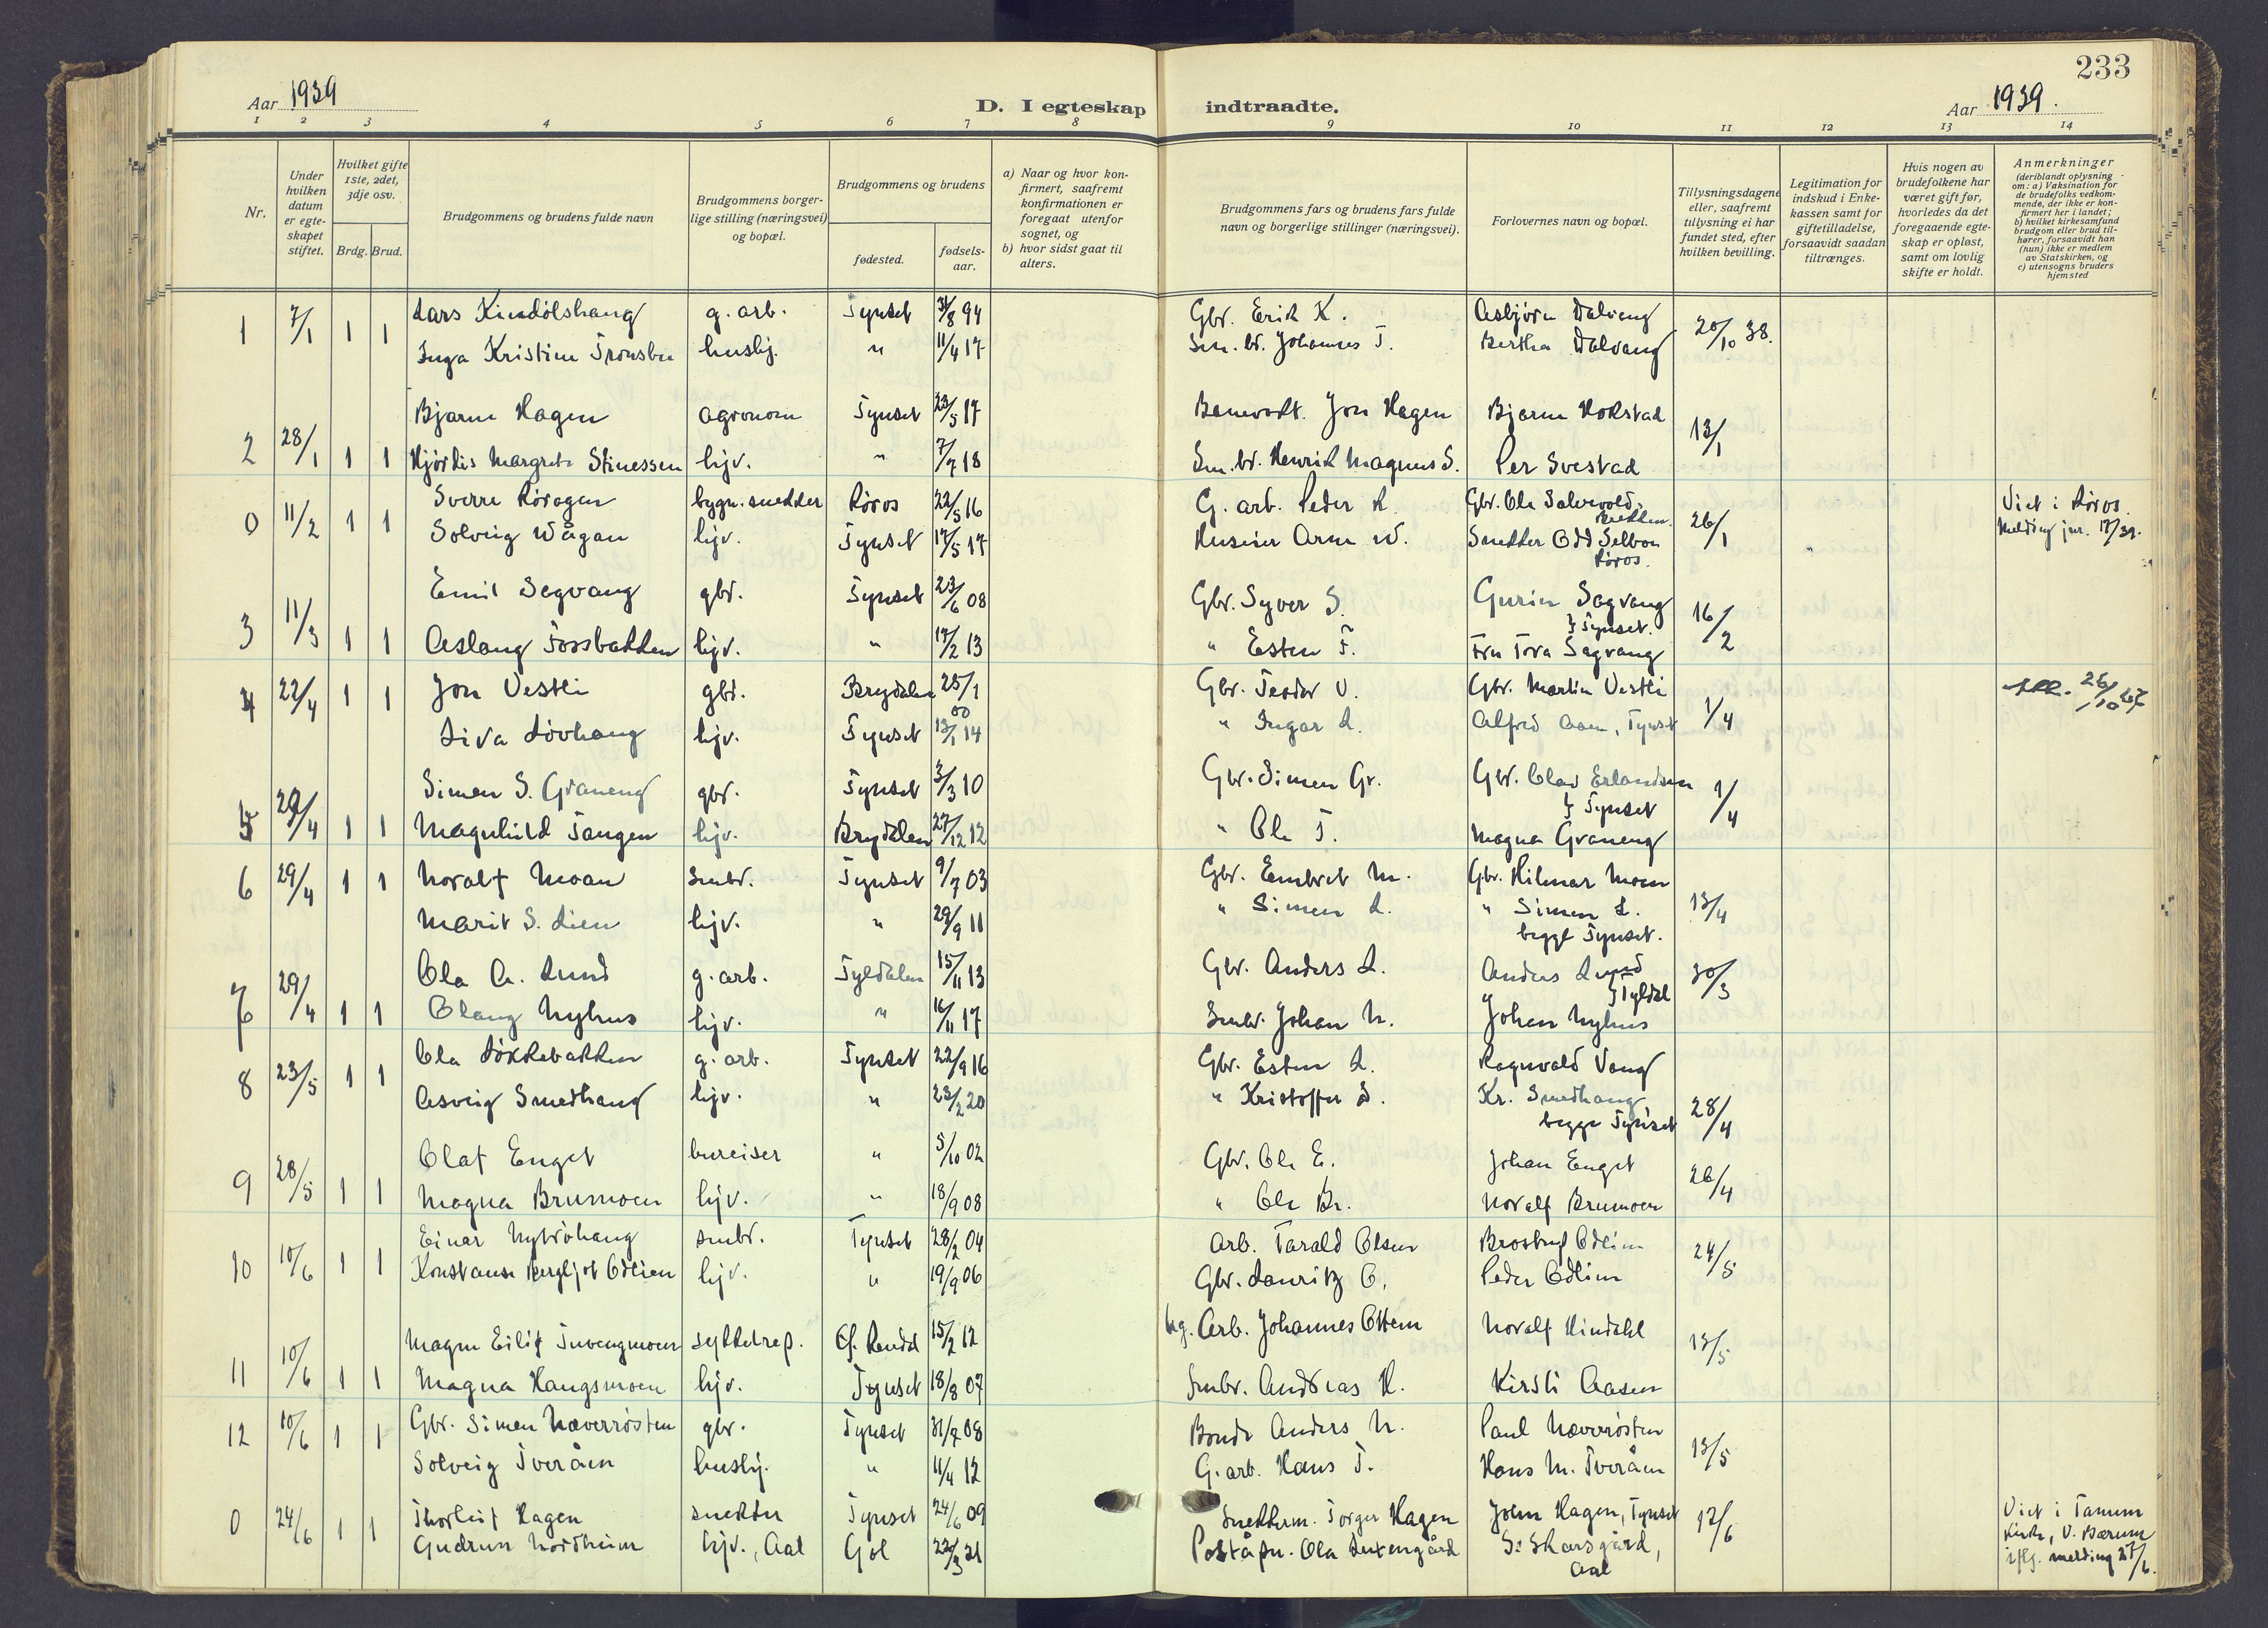 233
Aar 1939
D. I egteskap indtraadte.
Aar 1939.
1 2 3 4 5 6 7 8 9 10 11 12 13 14
Nr.
Under hvilken datum er egte-skapet stiftet.
Hvilket gifte 1ste, 2det, 3dje osv.
Brdg. Brud.
Brudgommens og brudens fulde navn
Brudgommens borger-lige stilling (næringsvei) og bopæl.
Brudgommens og brudens
fødested.
fødsels-aar.
a) Naar og hvor kon-firmert, saafremt konfirmationen er foregaat utenfor sognet, og
b) hvor sidst gaat til alters.
Brudgommens fars og brudens fars fulde navn og borgerlige stillinger (næringsvei).
Forlovernes navn og bopæl.
Tillysningsdagene eller, saafremt tillysning ei har fundet sted, efter hvilken bevilling.
Legitimation for indskud i Enke-kassen samt for giftetilladelse, forsaavidt saadan tiltrænges.
Hvis nogen av brudefolkene har været gift før, hvorledes da det foregaaende egte-skap er opløst, samt om lovlig skifte er holdt.
Anmerkninger (deriblandt oplysning om: a) Vaksination for de brudefolks vedkom-mende, der ikke er kon-firmert her i landet; b) hvilket kirkesamfund brudgom eller brud til-hører, forsaavidt han (hun) ikke er medlem av Statskirken, og c) utensogns bruders hjemsted
1 7/1 1 1 Lars Kindølshaug g. arb. Tynset 31/8 94 Gbr. Erik K. Asbjørn Dalvang 20/10 38.
Inga Kristine Tronsbu hushj. " 11/4 17 Sm. br. Johannes T. Bertha Dalvang
2 28/1 1 1 Bjarne Hagen agronom Tynset 23/5 17 Banevokt. Jon Hagen Bjarne Hokstad 13/1
Hjørdis Margrete Stinessen hjv. " 7/7 18 Sm. br. Henrik Magnus S. Per Svestad
0 11/2 1 1 Sverre Rørogen bygn. snekker Røros 22/5 16 G. arb. Peder R. Gbr. Ole Solvold, Brekken. 26/1 Viet i Røros.
Solveig Wågan hjv. Tynset 17/5 17 Arne W. Snekker Odd Selboe Røros. Melding jnr. 17/39.
3 11/3 1 1 Emil Segvang gbr. Tynset 23/6 08 Gbr. Syver S. Gurin Sagvang } Tynset. 16/2
Aslaug Fossbakken hjv. " 17/2 13 " Esten F. Fru Tora Sagvang
4 22/4 1 1 Jon Vestli gbr. Brydalen 25/1 00 Gbr. Teodor V. Gbr. Martin Vestli 1/4 26/10 67
Liva Løvhaug hjv. Tynset 13/1 14 " Ingar L. Alfred Aaen, Tynset
5 29/4 1 1 Simen S. Graneng gbr. Tynset 3/3 10 Gbr. Simen Gr. Gbr. Olav Erlandsen } Tynset 1/4
Magnhild Tangen hjv. Brydalen 27/12 12 " Ole T. Magna Graneng
6 29/4 1 1 Noralf Moan smbr. Tynset 9/7 03 Gbr. Embret M. Gbr. Hilmar Moen 13/4
Marit S. Lien hjv. " 29/9 11 " Simen L. " Simen L. begge Tynset.
7 29/4 1 1 Ola A. Lund g. arb. Tyldalen 15/11 13 Gbr. Anders L. Anders Lund } Tyldal 30/3
Olaug Nyhus hjv. " 16/11 17 Smbr. Johan N. Johan Nyhus
8 23/5 1 1 Ola Løkkebakken g. arb. Tynset 22/9 16 Gbr. Esten L. Ragnvald Vang 28/4
Asveig Smedhaug hjv. " 23/2 20 " Kristoffer S. Kr. Smedhaug begge Tynset
9 28/5 1 1 Olaf Enget bureiser " 5/10 02 Gbr. Ole E. Johan Enget 26/4
Magna Brumoen hjv. " 18/9 08 " Ole Br. Noralf Brumoen
10 10/6 1 1 Einar Nybrøhaug smbr. Tynset 28/2 04 Arb. Tarald Olsen Odlien 24/5
Konstanse Bergljot Odlien hjv. " 19/9 06 Gbr. Lauritz O. Peder Odlien
11 10/6 1 1 Magne Eilif Tuvengmoen sykkelrep. Ø. Rendal 15/2 12 Arb. Johannes Ottem Noralf Hindahl 13/5
Magna Haugsmoen hjv. Tynset 18/8 07 Smbr. Andreas H. Kirsti Aasen
12 10/6 1 1 Gbr. Simen Næverrøsten gbr. Tynset 31/7 08 Bonde Anders N. Paul Næverrøsten 13/5
Solveig Tveråen hushj. " 11/4 12 G. arb. Hans T. Hans M. Tveråen
0 24/6 1 1 Thorleif Hagen snekker Tynset 24/6 09 Snekkerm. Torger Hagen John Hagen, Tynset 17/6 Viet i Tanum
Gudrun Nordheim hjv., Aal Gol 22/3 21 Poståpn. Ola S. Skarsgård, Aal Kirke, V. Bærum iflg. melding 27/6.